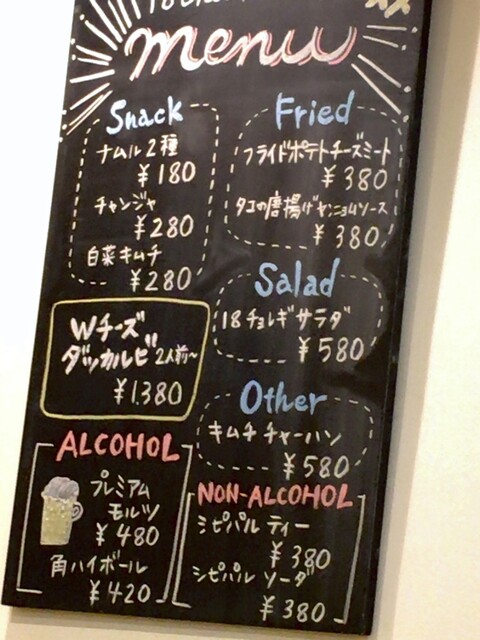 menu
Snack
ナムル2種
¥180
チャンジャ
¥280
白菜キムチ
¥280
Wチーズ
ダッカルビ 2人前~
¥1,380
ALCOHOL
プレミアム
モルツ
¥480
角ハイボール
¥420
Fried
フライドポテトチーズミート
¥380
タコの唐揚げヤンニョムソース
¥380
Salad
18チョレギサラダ
¥580
Other
キムチチャーハン
¥580
NON-ALCOHOL
シピパル ティー
¥380
シピパル ソーダ
¥380